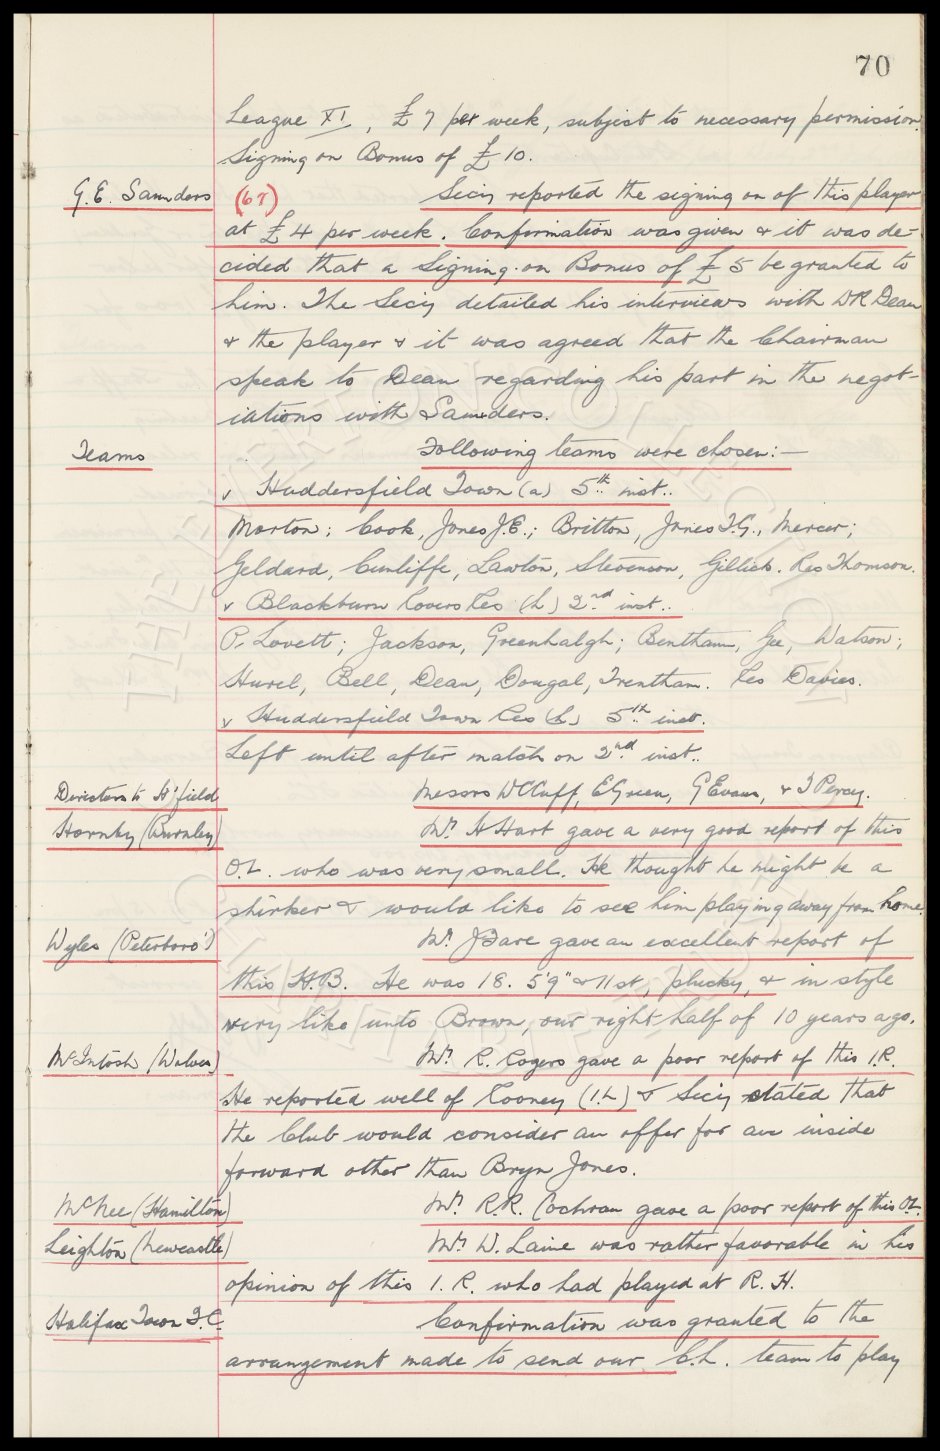 70
League XI, £7 per week, subject to necessary permission.
Signing on Bonus of £10.
G. E. Saunders (67) Secy reported the signing on of this player
at £4 per week. Confirmation was given & it was de-
cided that a Signing-on Bonus of £5 be granted to
him. The Secy detailed his interviews with W R Dean
& the player & it was agreed that the Chairman
speak to Dean regarding his part in the negot-
iations with Saunders.
Teams Following teams were chosen:—
v Huddersfield Town (a) 5th inst..
Morton; Cook, Jones J.E.; Britton, Jones T.G., Mercer;
Geldard, Cunliffe, Lawton, Stevenson, Gillick. Res Thomson.
v Blackburn Rovers Res (h) 2nd inst..
P. Lovett; Jackson, Greenhalgh; Bentham, Gee, Watson;
Hurel, Bell, Dean, Dougal, Trentham. Res Davies.
v Huddersfield Town Res (h) 5th inst.
Left until after match on 2nd inst..
Directors to H'field Messrs W C Cuff, E Green, G Evans, & T Percy.
Hornby (Burnley) Mr. H Hart gave a very good report of this
O.L. who was very small. He thought he might be a
shirker & would like to see him playing away from home.
Wyles (Peterboro') Mr. J Fare gave an excellent report of
this H.B. He was 18. 5'9" & 11 st, plucky, & in style
very like unto Brown, our right half of 10 years ago.
McIntosh (Wolves) Mr. R. Rogers gave a poor report of this I.R.
He reported well of Rooney (I.L) & Secy stated that
the Club would consider an offer for an inside
forward other than Bryn Jones.
McNee (Hamilton) Mr. R.R. Cochran gave a poor report of this O.L.
Leighton (Newcastle) Mr. W. Laine was rather favorable in his
opinion of this I.R. who had played at R.H.
Halifax Town F.C. Confirmation was granted to the
arrangement made to send our C.L. team to play